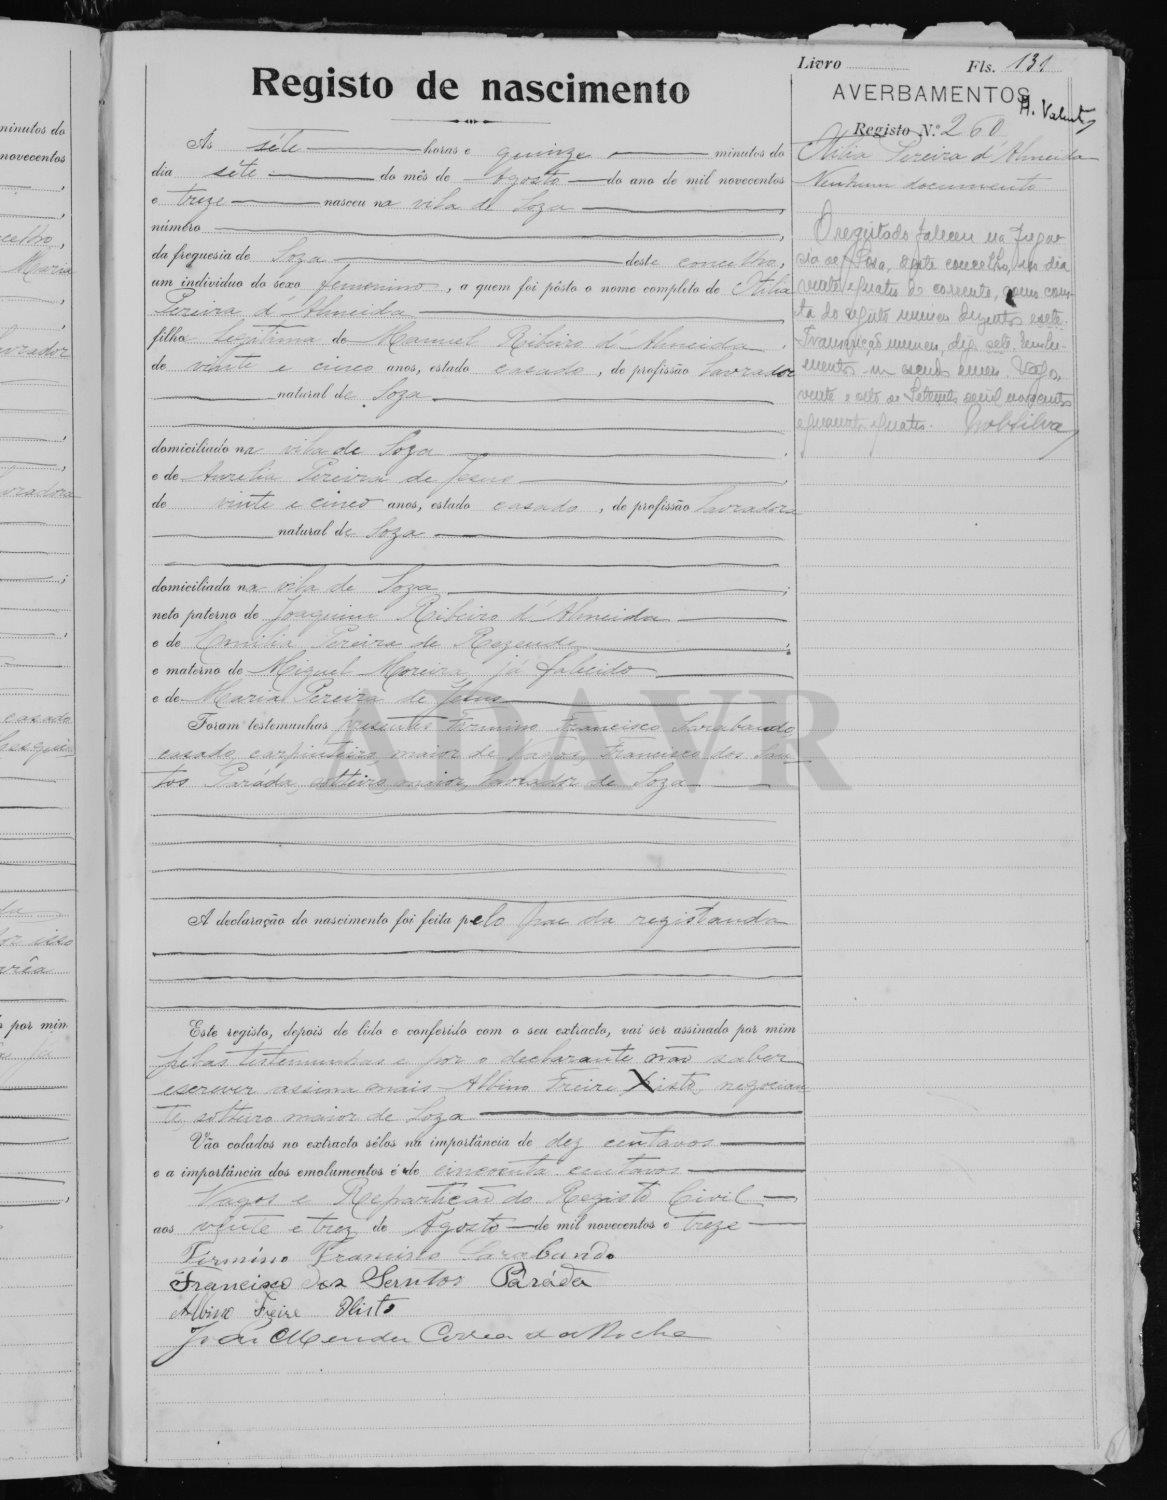 Livro Fls. 131
AVERBAMENTOS
Registo N.º 260
Otilia Pereira d'Almeida
Nenhum documento
O registado faleceu na fregue-
sia de Soza, deste concelho, no dia
vinte e quatro do corrente, como cons-
ta do registo numero duzentos e sete.
vinte e oito de Setembro de mil novecentos
e quarenta e quatro.
Registo de nascimento
Ás séte horas e quinze minutos do
dia séte do mês de Agosto do ano de mil novecentos
e treze nasceu na vila de Soza
número
da freguesia de Soza deste concelho,
um individuo do sexo femenino, a quem foi pôsto o nome completo de Otilia
Pereira d'Almeida
filha legitima de Manuel Ribeiro d'Almeida,
de vinte e cinco anos, estado casado, de profissão lavrador
natural de Soza
domiciliado na vila de Soza
e de Aurelia Pereira de Jesus
de vinte e cinco anos, estado casado, de profissão lavradora
natural de Soza
domiciliada na vila de Soza;
neto paterno de Joaquim Ribeiro d'Almeida
e de Emilia Pereira de Rezende;
e materno de Miguel Moreira, já falecido
e de Maria Pereira de Jesus
Foram testemunhas presentes Firmino Francisco Sarabando,
casado, carpinteiro, maior de Vagos, Francisco dos San-
tos Paráda, solteiro, maior, lavrador de Soza
ADAVR
A declaração do nascimento foi feita pelo pae da registanda
Este registo, depois de lido e conferido com o seu extracto, vai ser assinado por mim
pelas testemunhas e por o declarante não saber
escrever assina mais Albino Freire, negocian-
te, solteiro maior de Soza
Vão colados no extracto sêlos na importância de dez centavos
e a importância dos emolumentos é de cincoenta centavos
Vagos e Repartição do Registo Civil
aos vinte e trez de Agosto de mil novecentos e treze
Firmino Francisco Sarabando
Francisco dos Santos Paráda
Albino Freire
João Mendes Correa da Rocha